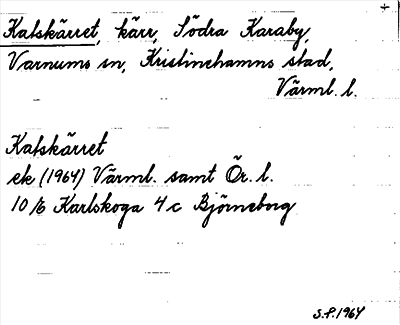 Kalskärret, kärr, Södra Karaby,
Varnums sn, Kristinehamns stad,
Värml. l.
Kalskärret
ek (1964) Värml. samt Ör. l.
10/6 Karlskoga 4c Björneborg
S.P. 1964